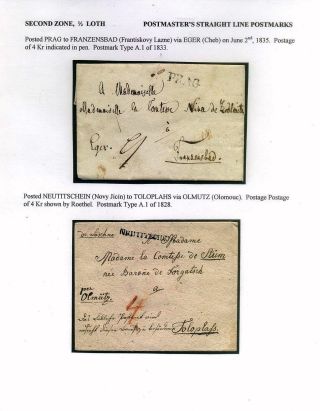 SECOND ZONE, ½ LOTH POSTMASTER'S STRAIGHT LINE POSTMARKS
Posted PRAG to FRANZENSBAD (Frantiskovy Lazne) via EGER (Cheb) on June 2nd, 1835. Postage
of 4 Kr indicated in pen. Postmark Type A.1 of 1833.
PRAG
A Mademoiselle
Mademoiselle la Comtesse Nina de
à
Eger
Franzensbad
Posted NEUTITSCHEIN (Novy Jicin) to TOLOPLAHS via OLMUTZ (Olomouc). Postage Postage
of 4 Kr shown by Roethel. Postmark Type A.1 of 1828.
A Madame
Madame la Comtesse de Stüm
née Barone de Forgatsch
a
per
Olmütz
4
Toloplass